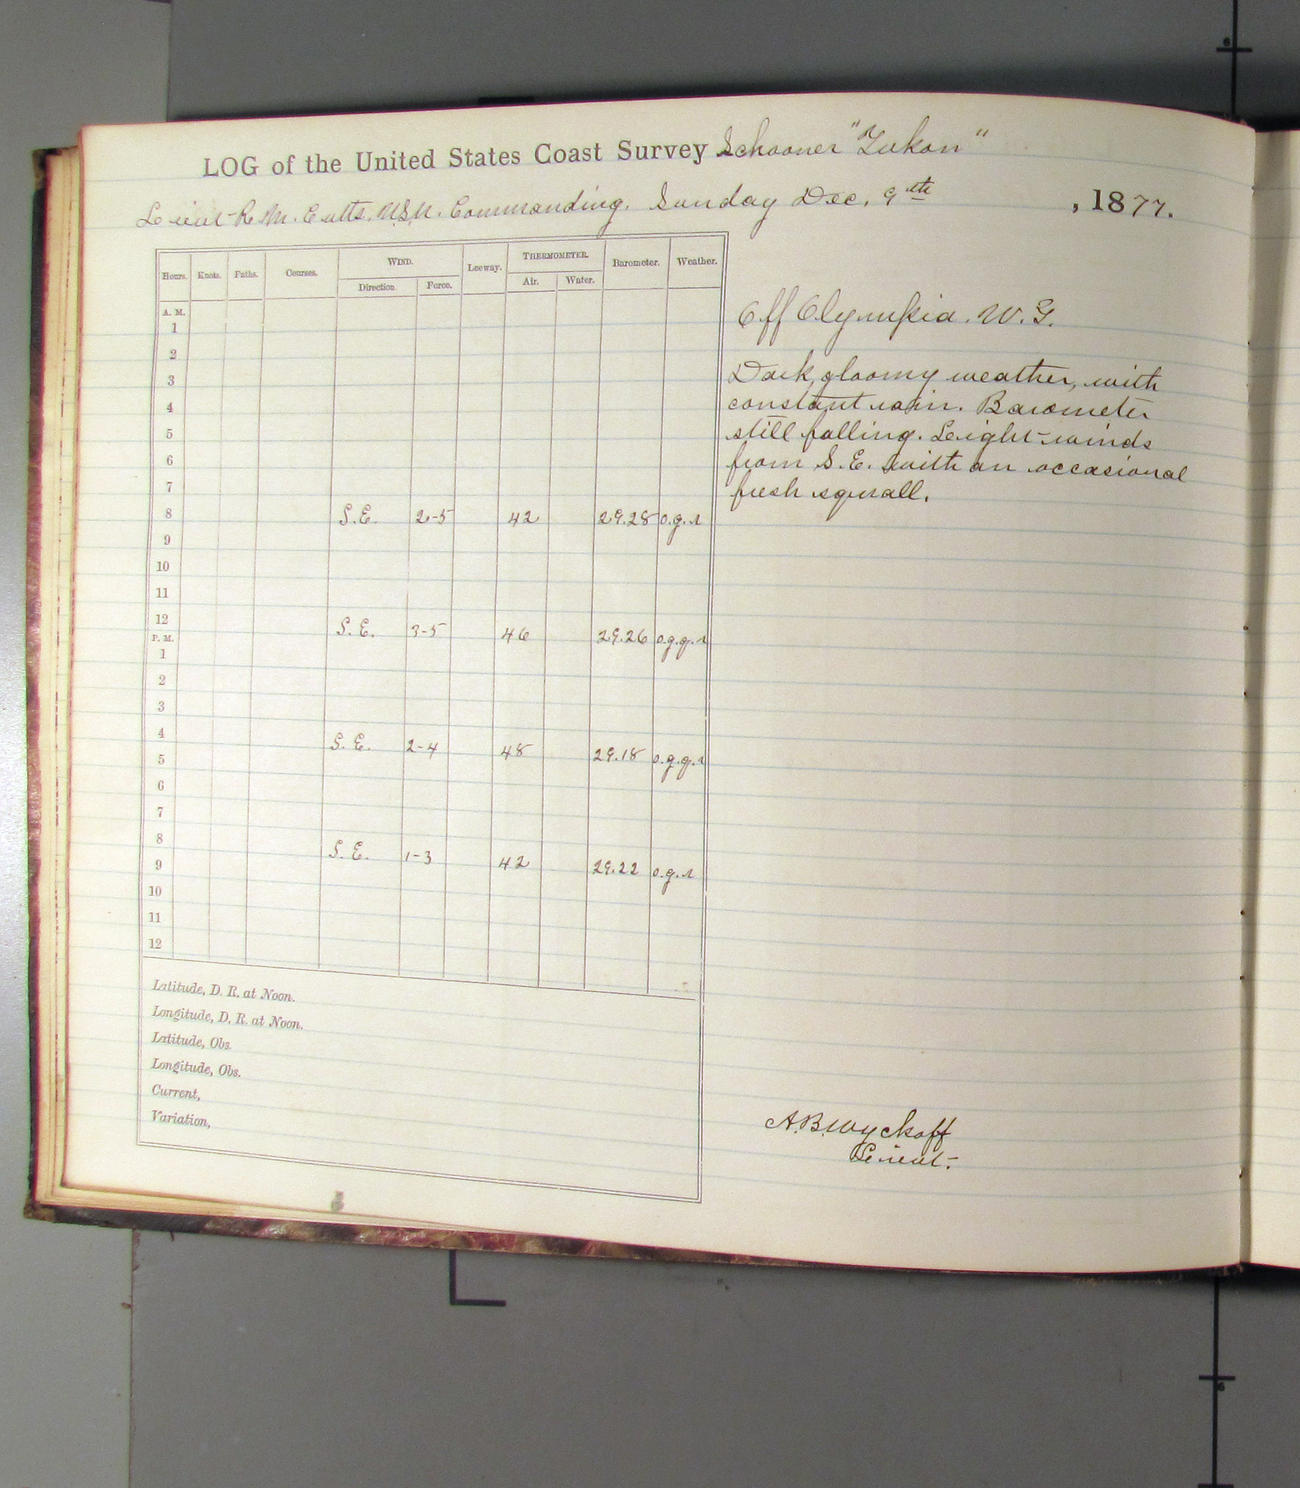 LOG of the United States Coast Survey Schooner "Yukon"
Lieut R. M. Cutts, U.S.N. Commanding. Sunday Dec. 9th, 1877.
WIND. THERMOMETER.
Hours. Knots. Faths. Courses. Direction. Force. Leeway. Air. Water. Barometer. Weather.
A. M.
1
2
3
4
5
6
7
8 S.E. 2-5 42 29.28 o.g.r
9
10
11
12 S.E. 3-5 46 29.26 o.g.q.r
P. M.
1
2
3
4 S.E. 2-4 48 29.18 o.g.q.r
5
6
7
8 S.E. 1-3 42 29.22 o.g.r
9
10
11
12
Latitude, D. R. at Noon.
Longitude, D. R. at Noon.
Latitude, Obs.
Longitude, Obs.
Current,
Variation,
Off Olympia. W.T.
Dark, gloomy weather, with
constant rain. Barometer
still falling. Light winds
from S.E. with an occasional
fresh squall.
A.B. Wyckoff
Lieut.
6
6